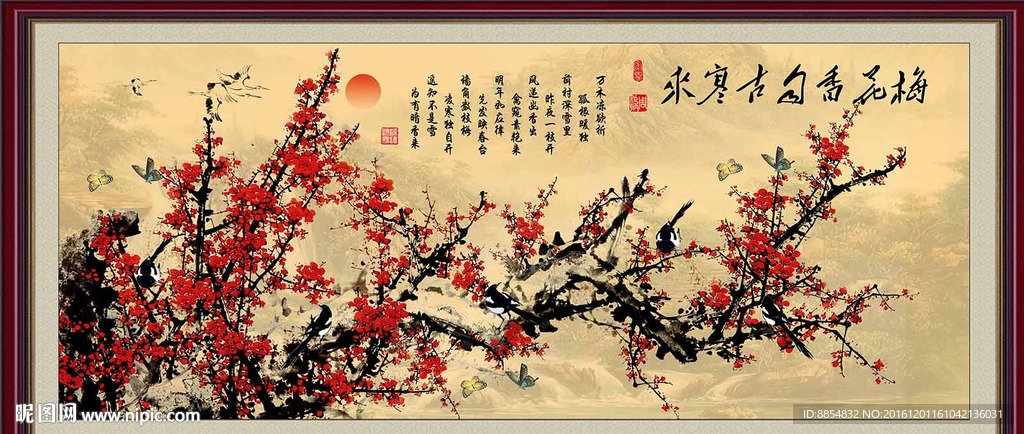 梅花香自苦寒來
万木冻欲折
孤根暖独
前村深雪里
昨夜一枝开
风递幽香出
禽窥素艳来
明年如应律
先发映春台
墙角数枝梅
凌寒独自开
遥知不是雪
为有暗香来
昵图网 www.nipic.com
ID:8854832 NO:20161201161042136031